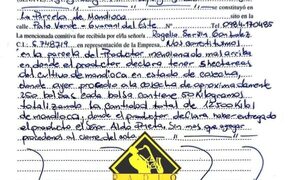 se constituyó en
La Parcela de Mandioca
Palo Verde - Guarani del Este Nº 0984-170485
La mencionada comitiva fue recibida por el/la señor/a Rogelio Servin Gonzalez
C.I. 5.748.219 en representación de la Empresa. Nos constituimos
en la parcela del Productor mencionado mas arriba
en donde el productor declara tener 5 hectareas
del cultivo de mandioca en estado de cosecha,
donde ayer procedio a la cosecha de aproximadamente
250 bolsas cada bolsa contiene 50 Kilogramos
totalizando la cantidad total de 12.500 Kilos
de mandioca, donde el productor declara haber entregado
el producto al Señor Aldo Prieto, sin mas que agregar
procedemos al cierre del